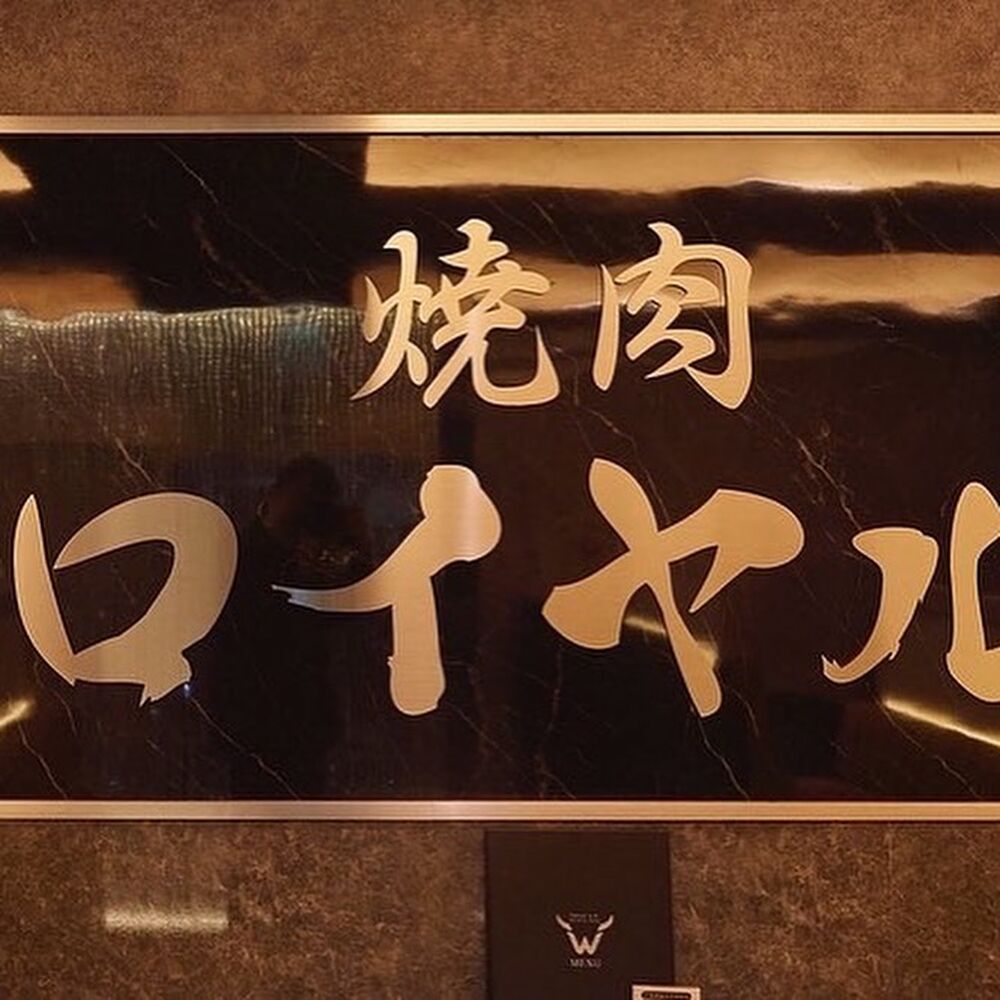 焼肉
ロイヤル
W
MENU